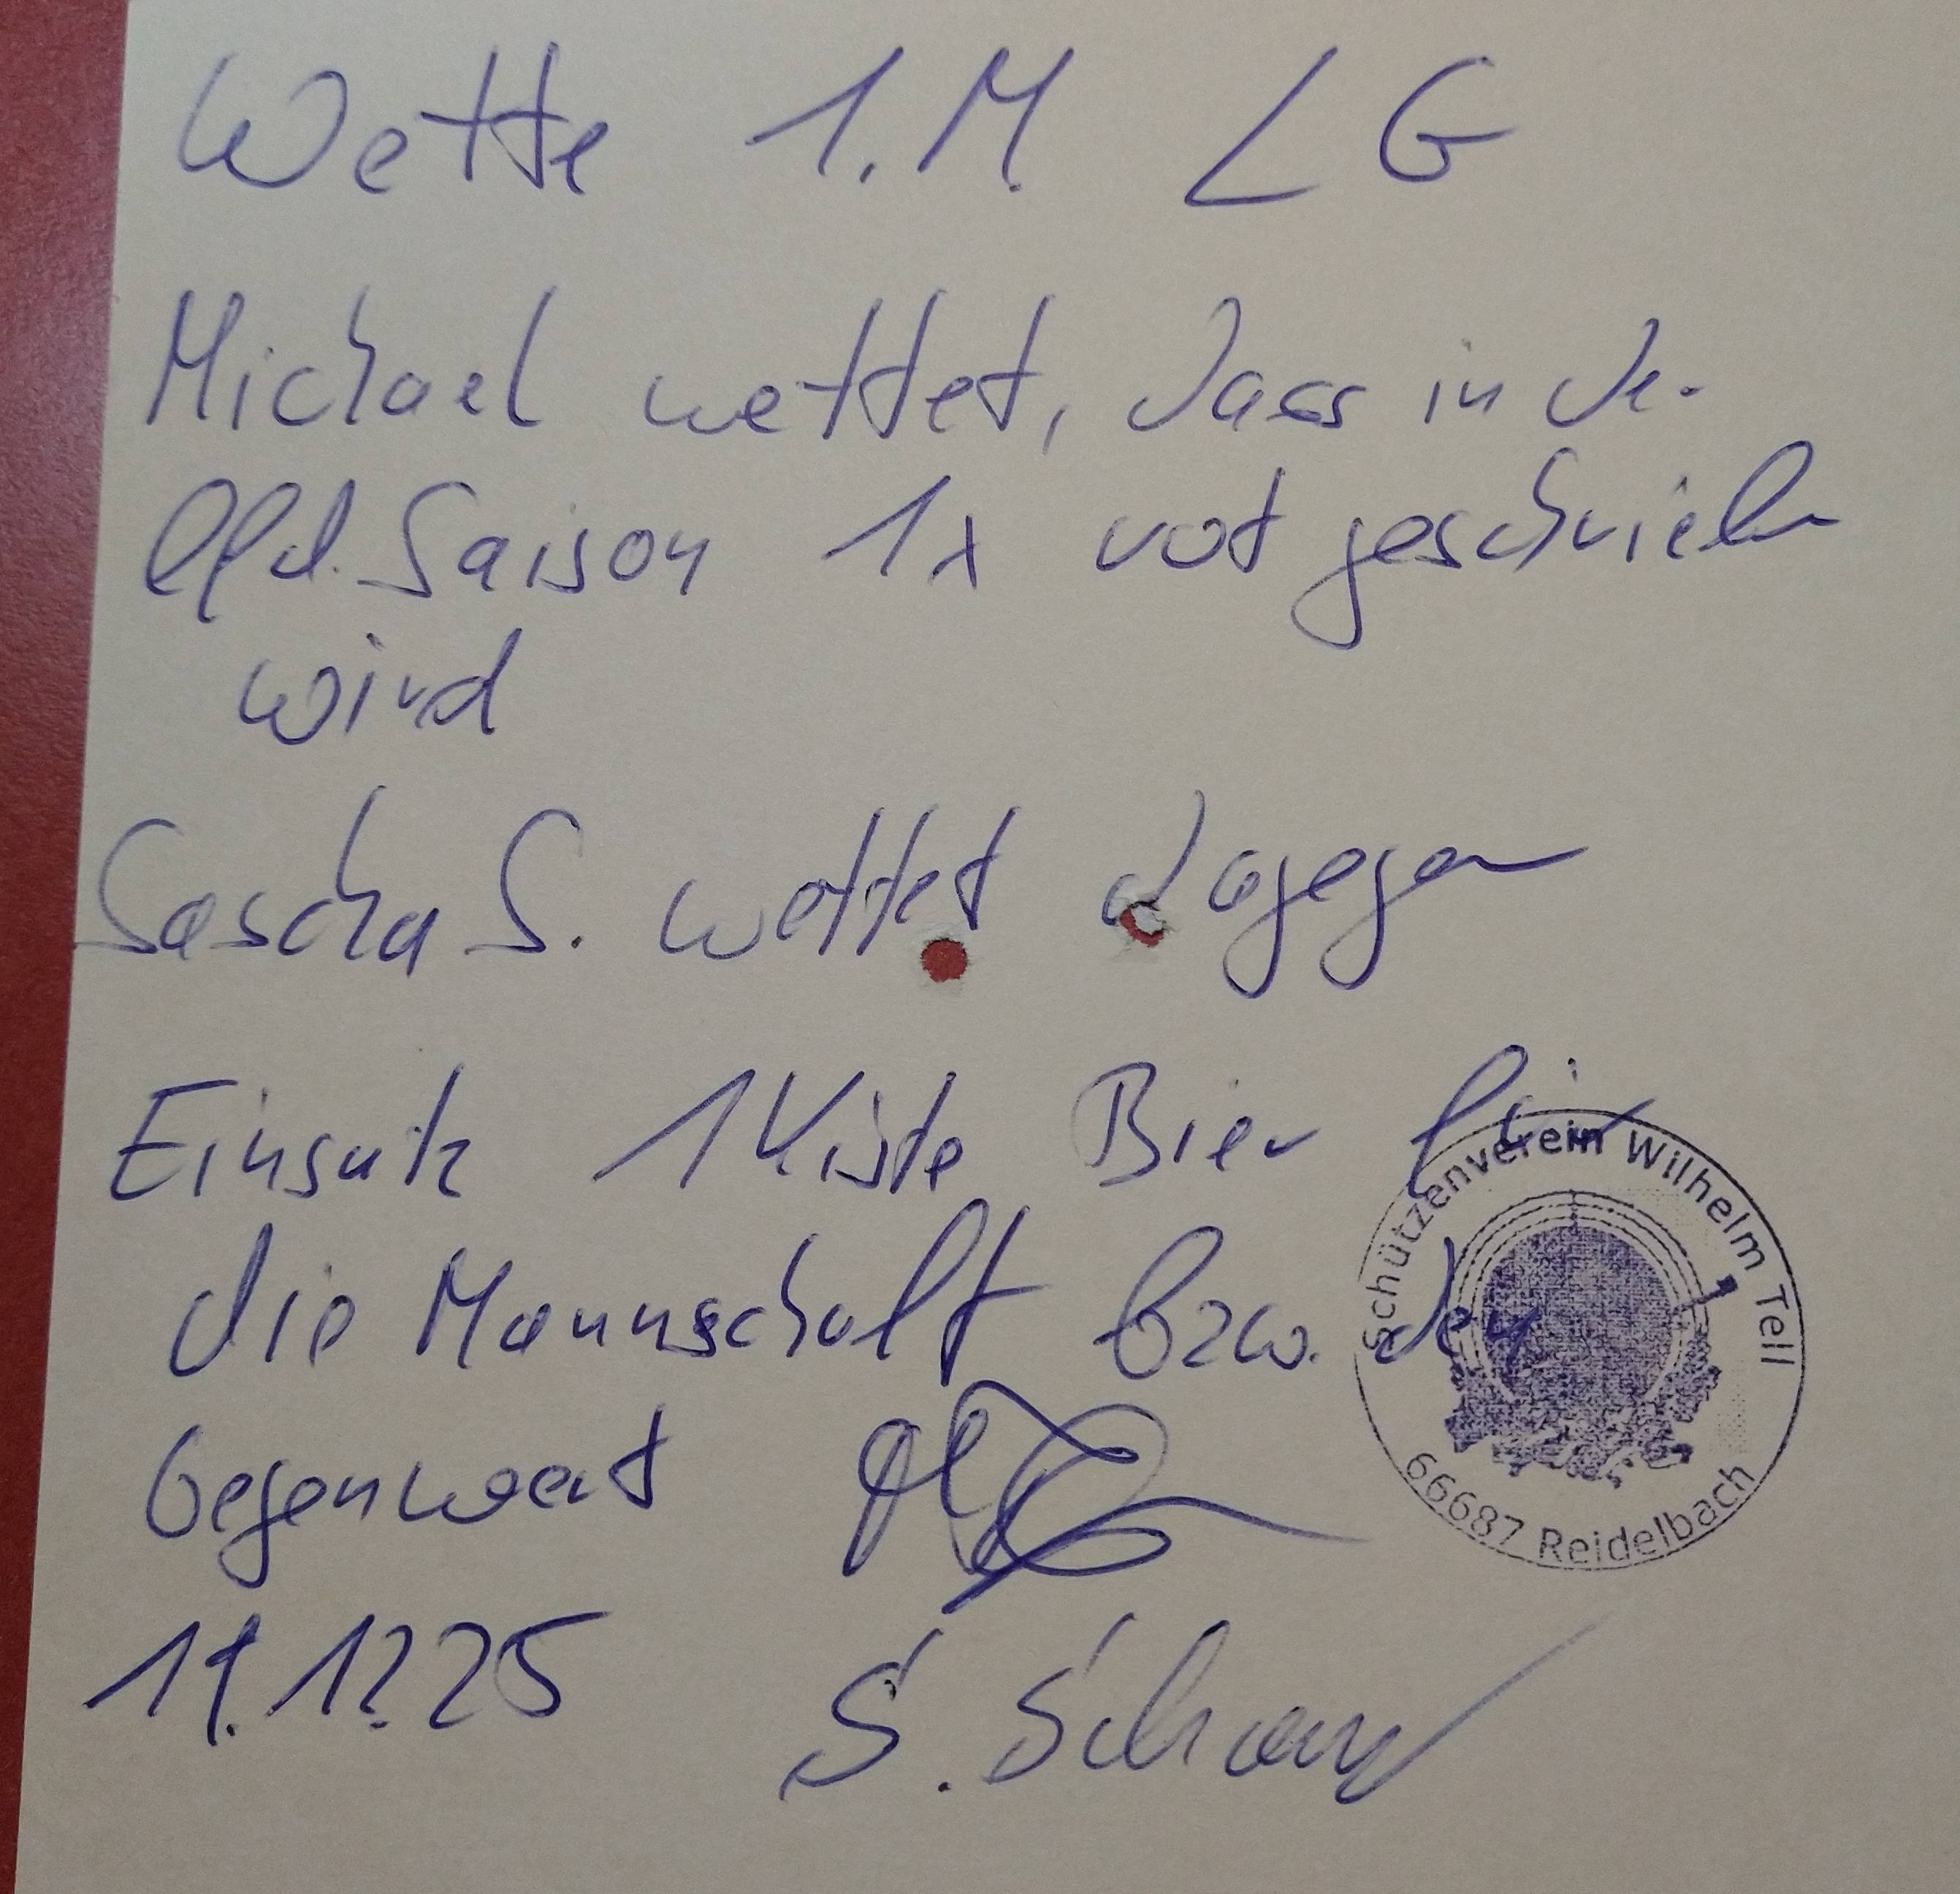 Wette 1. M. LG
Michael wettet, dass in der
lfd. Saison 1x rot geschrieben
wird
Sascha S. wettet dagegen
Einsatz 1 Kiste Bier für
die Mannschaft bzw. den
Gegenwert
19.12.25
S.
Schützenverein Wilhelm Tell
66687 Reidelbach